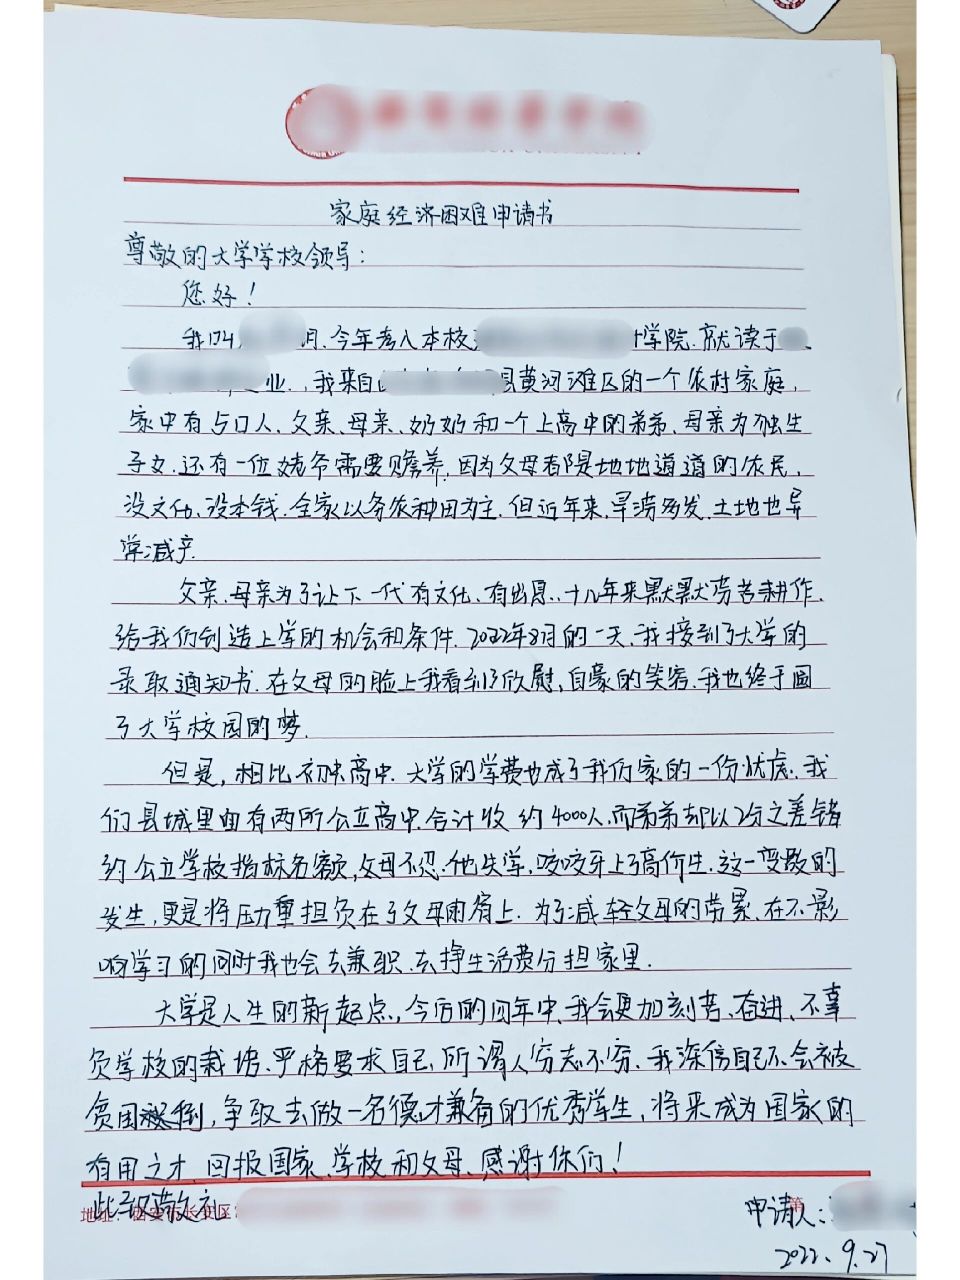 家庭经济困难申请书
尊敬的大学学校领导：
您好！
我叫 月、今年考入本校 计学院、就读于
业．，我来自 县黄河滩区的一个农村家庭，
家中有5口人、父亲、母亲、奶奶和一个上高中的弟弟、母亲为独生
子女．还有一位姥爷需要赡养，因为父母都是地地道道的农民，
没文化、没本钱．全家以务农种田为主．但近年来，旱涝多发．土地也异
常减产．
父亲、母亲为了让下一代有文化、有出息．十几年来默默劳苦耕作．
给我们创造上学的机会和条件．2022年8月的一天、我接到了大学的
录取通知书．在父母的脸上我看到了欣慰，自豪的笑容．我也终于圆
了大学校园的梦．
但是，相比初中高中．大学的学费也成了我们家的一份忧虑．我
们县城里由有两所公立高中．合计收约4000人．而弟弟却以2分之差错
约公立学校指标名额，父母不忍他失学，咬咬牙上了高价生．这一变数的
发生，更是将压力重担负在了父母肩上．为了减轻父母的劳累．在不影
响学习的同时我也会去兼职．去挣生活费分担家里．
大学是人生的新起点，今后的四年中、我会更加刻苦、奋进、不辜
负学校的栽培、严格要求自己．所谓人穷志不穷．我深信自己不会被
贫困 倒，争取去做一名德才兼备的优秀学生，将来成为国家的
有用之才、回报国家、学校和父母、感谢你们！
此致敬礼
地址：西安市长安区
第
申请人：
2022．9．27